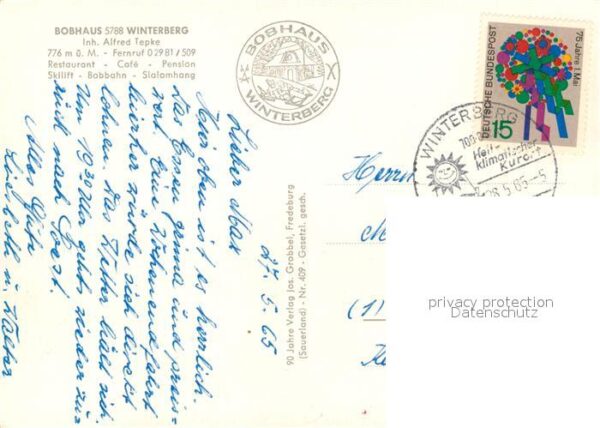 BOBHAUS 5788 WINTERBERG
Inh. Alfred Tepke
776 m ü. M. - Fernruf 0 29 81 / 509
Restaurant - Café - Pension
Skilift - Bobbahn - Slalomhang
BOBHAUS
WINTERBERG
27. 5. 65
Lieber Max
Hier oben ist es herrlich.
Das Essen prima und preis-
wert. Eine Wochenendfahrt
hierher würde sich direkt
lohnen. Das Wetter hält sich.
Um 19.30 Uhr geht's wieder zu-
rück nach Soest.
Alles Gute
Liesbeth u. Walter
90 Jahre Verlag Jos. Grobbel, Fredeburg
(Sauerland) - Nr. 409 - Gesetzl. gesch.
75 JAHRE 1. MAI
DEUTSCHE BUNDESPOST
15
WINTERBERG
Heil-
klimatischer
Kurort
28.5.65--5
Herrn
(1)
privacy protection
Datenschutz